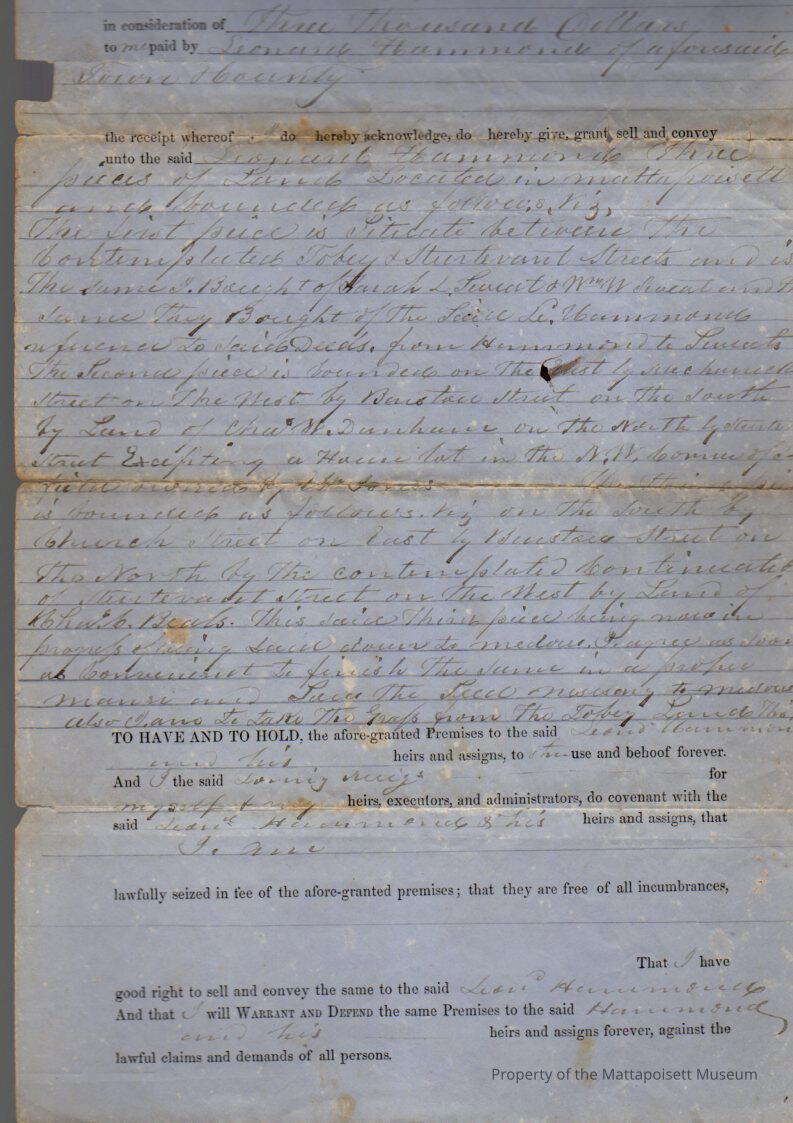 in consideration of Three Thousand Dollars
to me paid by Leonard Hammond of aforesaid
Town & County
the receipt whereof I do hereby acknowledge, do hereby give, grant, sell and convey
unto the said Leonard Hammond Three
pieces of Land Located in mattapoisett
and bounded as follows. Viz,
The first piece is Situate between The
Contemplated Tobey & Sturtevant Streets and is
The same I Bought of Sarah L. Sweat & Wm W Sweat and th
Same They Bought of the Said L. Hammond
reference to Said Deeds. from Hammond to Sweats
The Second piece is bounded on The East by Mechanics
Street on The West by Barstow Street on the South
by Land of Chas W. Dunham on the North by
Street Excepting a House lot in the N.W. Corner of
field owned by Jones
is bounded as follows. Viz on the South by
Church Street on East by Barstow Street on
The North by The contemplated Continuation
of Sturtevant Street on The West by Land of
Chas. C. Beals. This said Third piece being now in
progress laying Laid down to medow. I agree as soon
as Convenient To finish The same in a proper
manner and The Seed nessesary to medow
also I am To Take The Grass from the Tobey Land This
TO HAVE AND TO HOLD, the afore-granted Premises to the said Leond Hammon
and his heirs and assigns, to their use and behoof forever.
And I the said Loring Meigs for
myself & my heirs, executors, and administrators, do covenant with the
said Leond Hammond & his heirs and assigns, that
I am
lawfully seized in fee of the afore-granted premises; that they are free of all incumbrances,
That I have
good right to sell and convey the same to the said Leond Hammond
And that I will WARRANT AND DEFEND the same Premises to the said Hammond
and his heirs and assigns forever, against the
lawful claims and demands of all persons.
Property of the Mattapoisett Museum